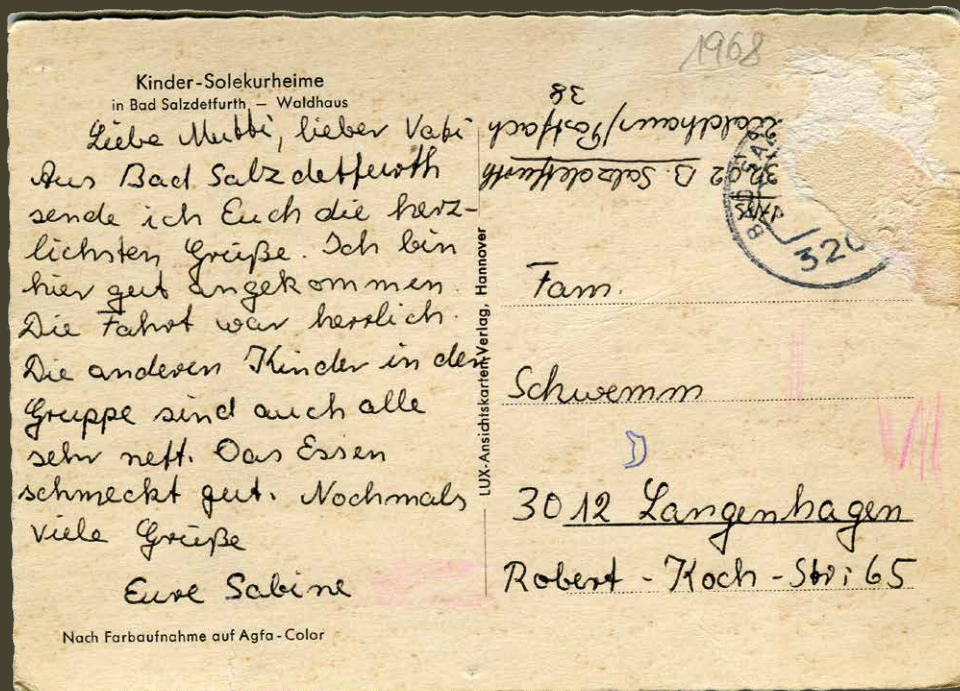 Kinder-Solekurheime
in Bad Salzdetfurth – Waldhaus
Liebe Mutti, lieber Vati
Aus Bad Salzdetfurth
sende ich Euch die herz-
lichsten Grüße. Ich bin
hier gut angekommen.
Die Fahrt war herrlich.
Die anderen Kinder in der
Gruppe sind auch alle
sehr nett. Das Essen
schmeckt gut. Nochmals
viele Grüße
Eure Sabine
Nach Farbaufnahme auf Agfa-Color
LUX-Ansichtskarten-Verlag, Hannover
1968
3202 B. Salzdetfurth
Waldhaus/Postfach
38
BAD SA
320
Fam.
Schwemm
3012 Langenhagen
Robert-Koch-Str: 65